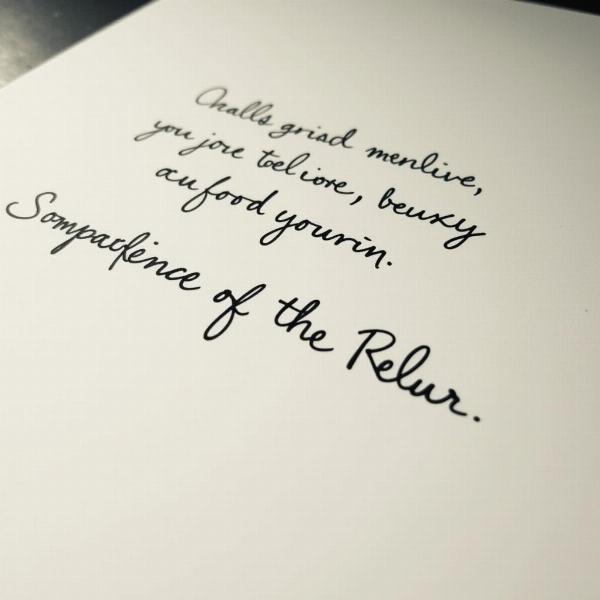 Challs griad menlive,
you jore toel iore, beuxy
aufood yourin.
Sompadence of the Relur.